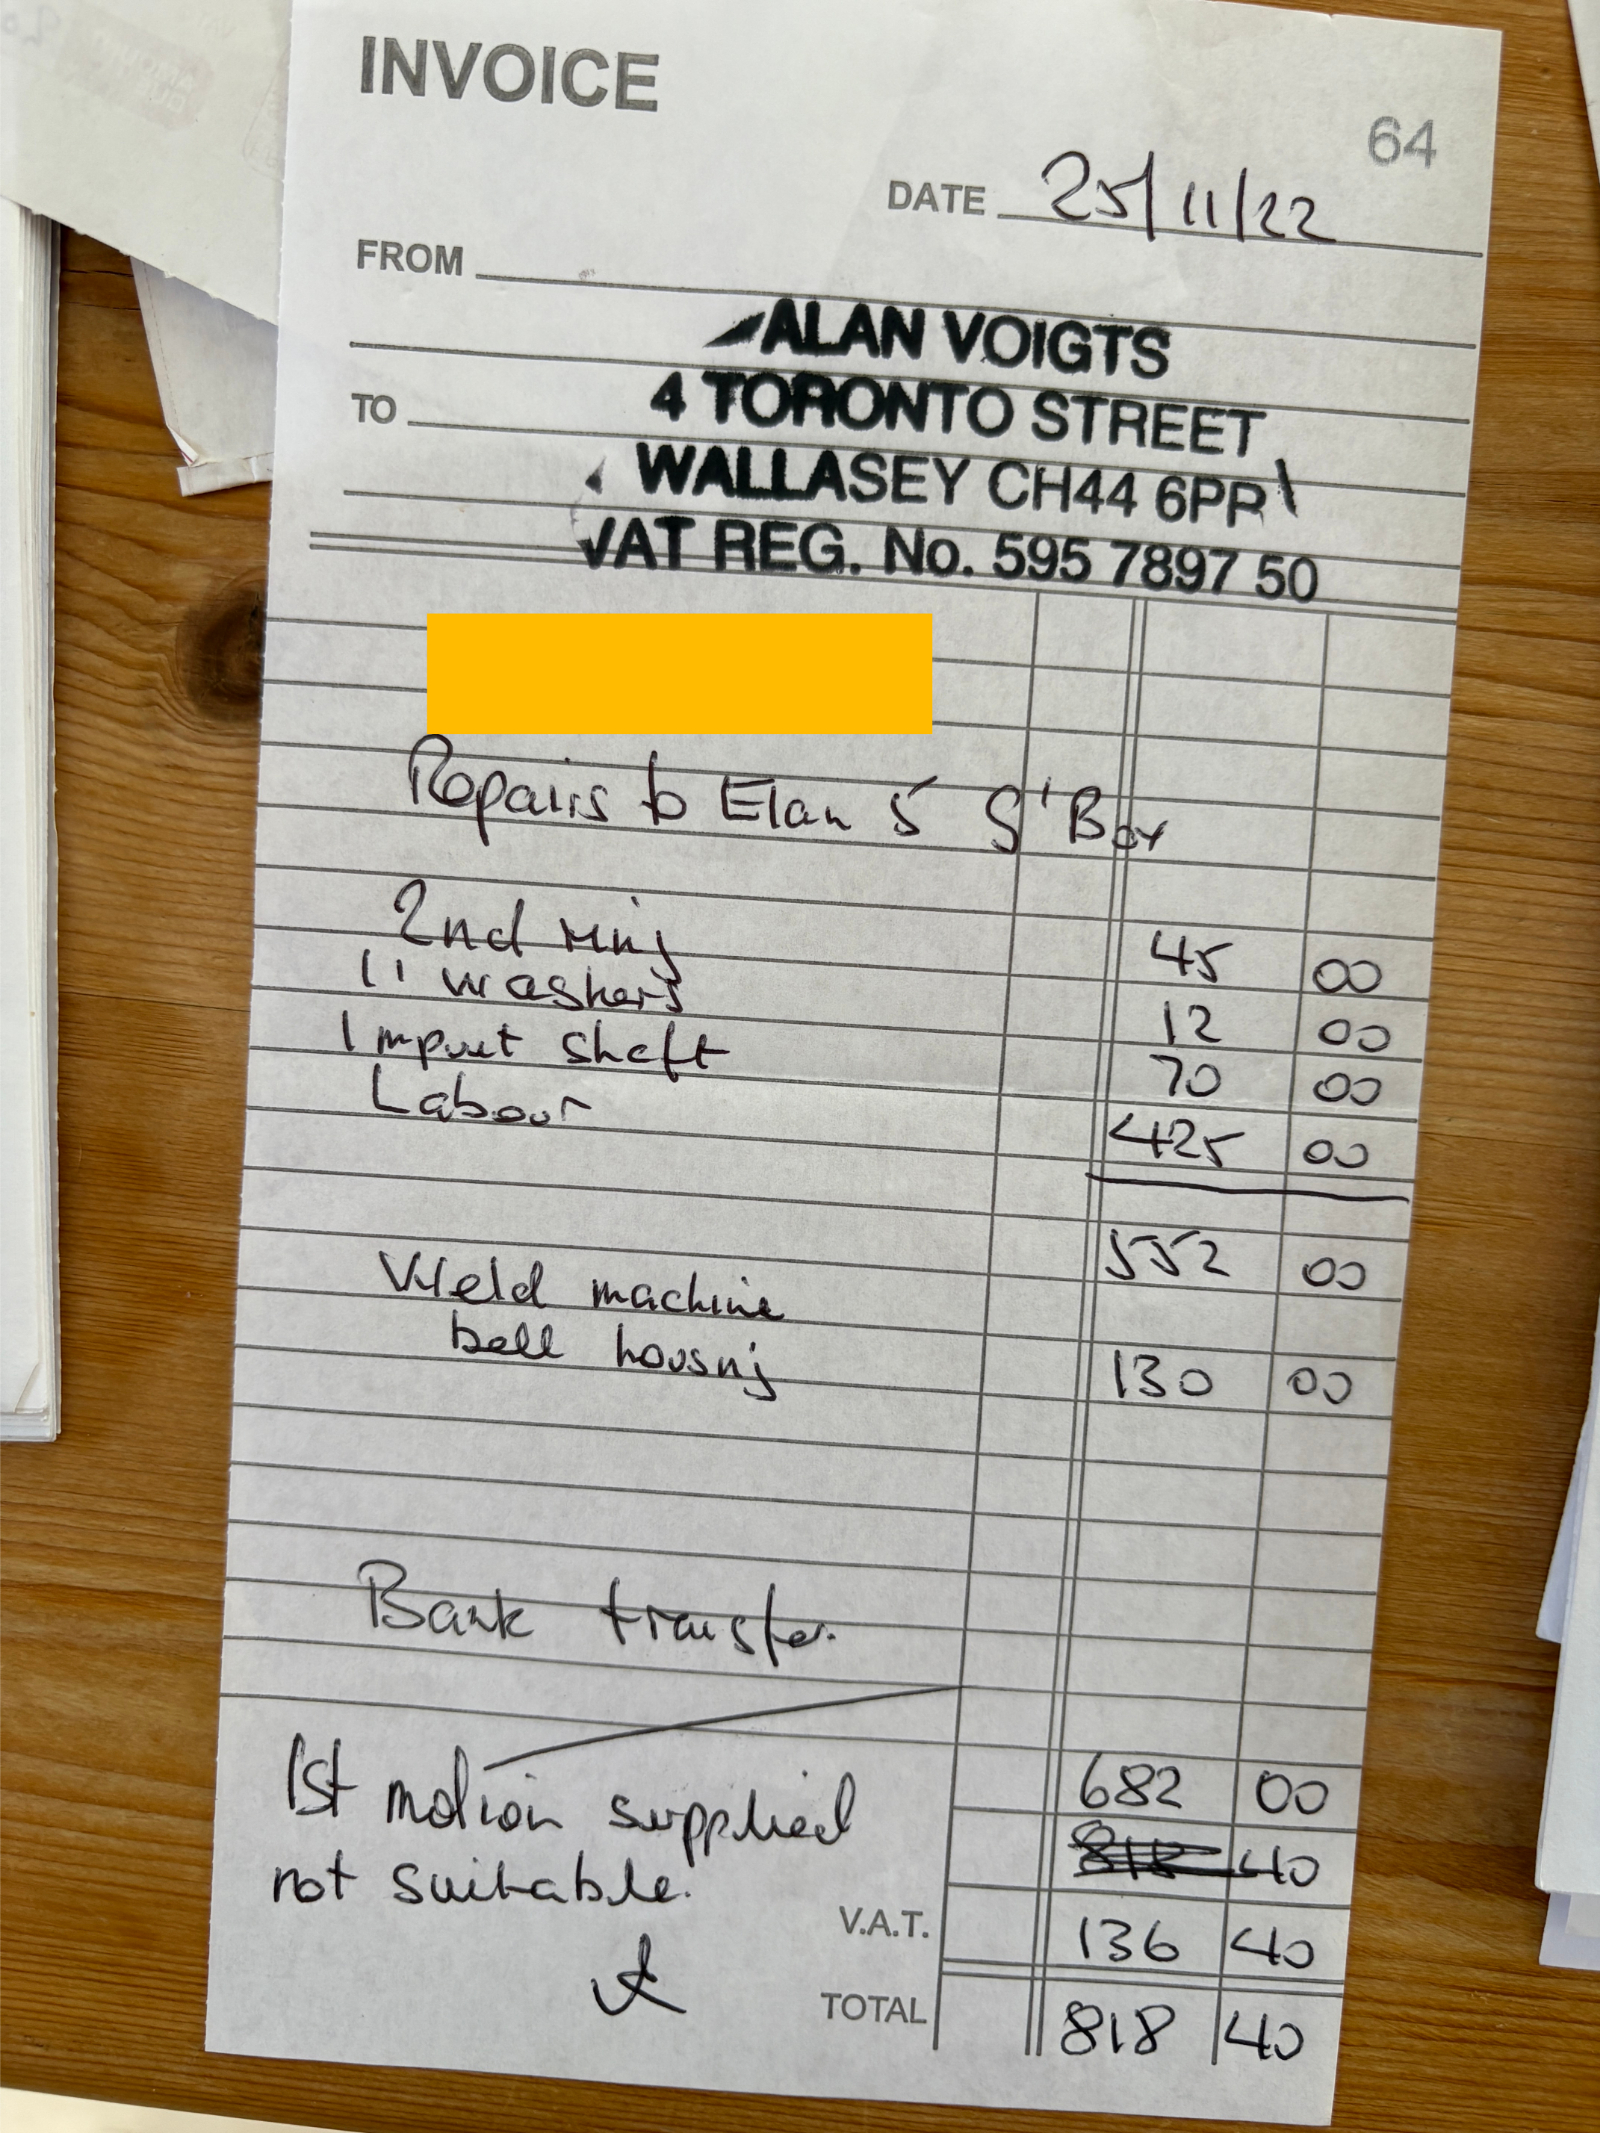 INVOICE
64
DATE 25/11/22
FROM
ALAN VOIGTS
4 TORONTO STREET
TO
WALLASEY CH44 6PR
VAT REG. No. 595 7897 50
Repairs to Elan 5 G'Box
2nd ring 45 00
11 washers 12 00
Imput shaft 70 00
Labour 425 00
552 00
Weld machine
bell housing 130 00
Bank transfer.
1st motion supplied 682 00
not suitable. 818 40
V.A.T. 136 40
TOTAL 818 40